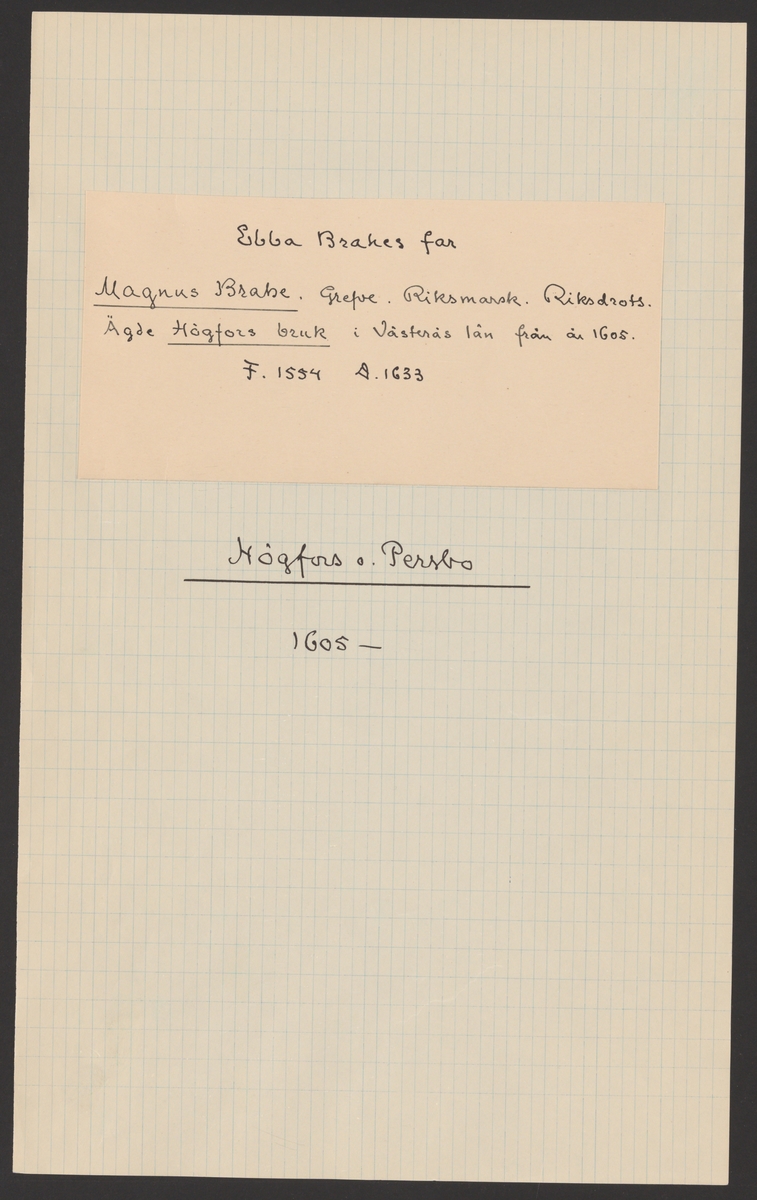 Ebba Brahes far
Magnus Brahe. Grefve. Riksmarsk. Riksdrots.
Ägde Högfors bruk i Västerås län från år 1605.
F. 1554 D. 1633
Högfors o. Persbo
1605 —